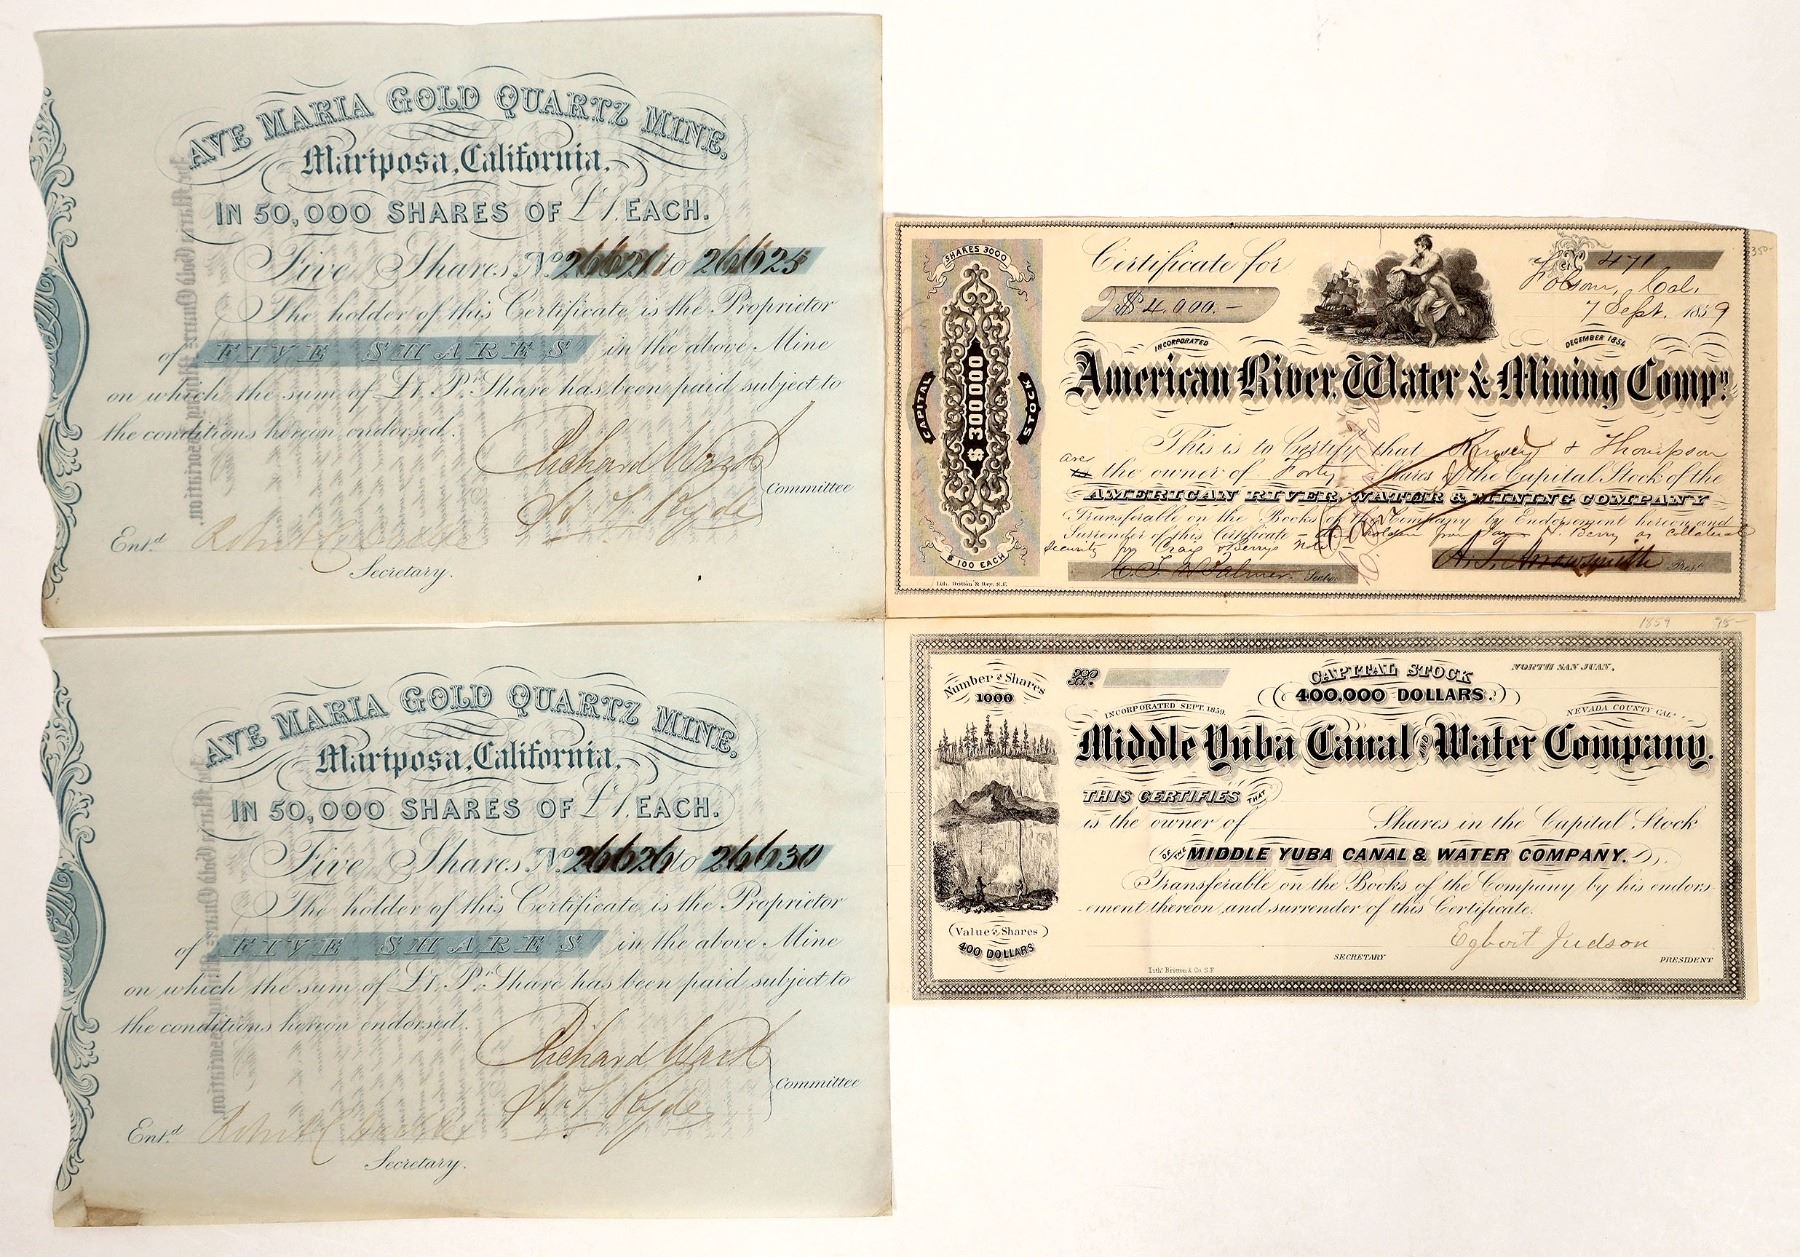 AVE MARIA GOLD QUARTZ MINE,
Mariposa, California,
IN 50,000 SHARES OF £1, EACH.
Five Shares, No. 26621 to 26625
The holder of this Certificate is the Proprietor
of FIVE SHARES in the above Mine
on which the sum of £1. Pr. Share has been paid subject to
the conditions hereon endorsed.
Richard Ward
Committee
Ent.d
Secretary.
AVE MARIA GOLD QUARTZ MINE,
Mariposa, California,
IN 50,000 SHARES OF £1, EACH.
Five Shares, No. 26626 to 26630
The holder of this Certificate is the Proprietor
of FIVE SHARES in the above Mine
on which the sum of £1. Pr. Share has been paid subject to
the conditions hereon endorsed.
Richard Ward
Committee
Ent.d
Secretary.
SHARES 3000
CAPITAL
$300000
STOCK
$100 EACH
Certificate for
$4,000.-
No. 471
350-
Folsom, Cal.
7 Sept. 1859
INCORPORATED
DECEMBER 1854
American River, Water & Mining Compy.
This is to Certify that & Thompson
are the owner of Forty Shares of the Capital Stock of the
AMERICAN RIVER, WATER & MINING COMPANY
Transferable on the Books of the Company by Endorsement hereon and
Surrender of this Certificate - Berry as collateral
security for Craig & Berrys Note
Secty.
Prest.
Lith. Britton & Rey. S.F.
1859 75-
Number of Shares
1000
No.
CAPITAL STOCK
400,000 DOLLARS.
NORTH SAN JUAN,
INCORPORATED SEPT. 1859.
NEVADA COUNTY CAL.
Middle Yuba Canal and Water Company.
THIS CERTIFIES THAT
is the owner of Shares in the Capital Stock
of the MIDDLE YUBA CANAL & WATER COMPANY.
Transferable on the Books of the Company by his endors-
ement thereon, and surrender of this Certificate.
(Value of Shares)
400 DOLLARS
Egbert Judson
SECRETARY
PRESIDENT
Lith. Britton & Co. S.F.